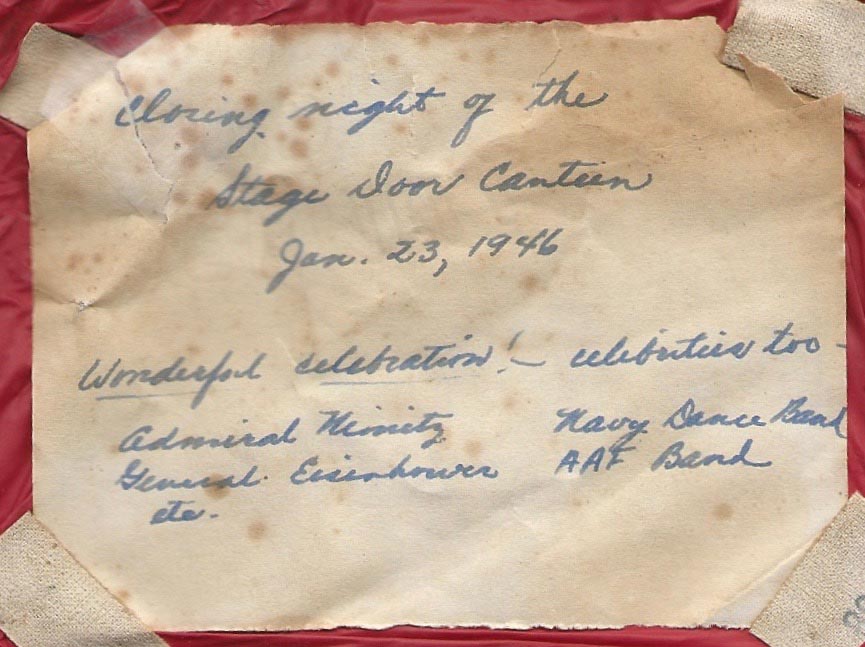 Closing night of the
Stage Door Canteen
Jan. 23, 1946
Wonderful celebration! – celebrities too –
Admiral Nimitz Navy Dance Band
General Eisenhower AAF Band
etc.